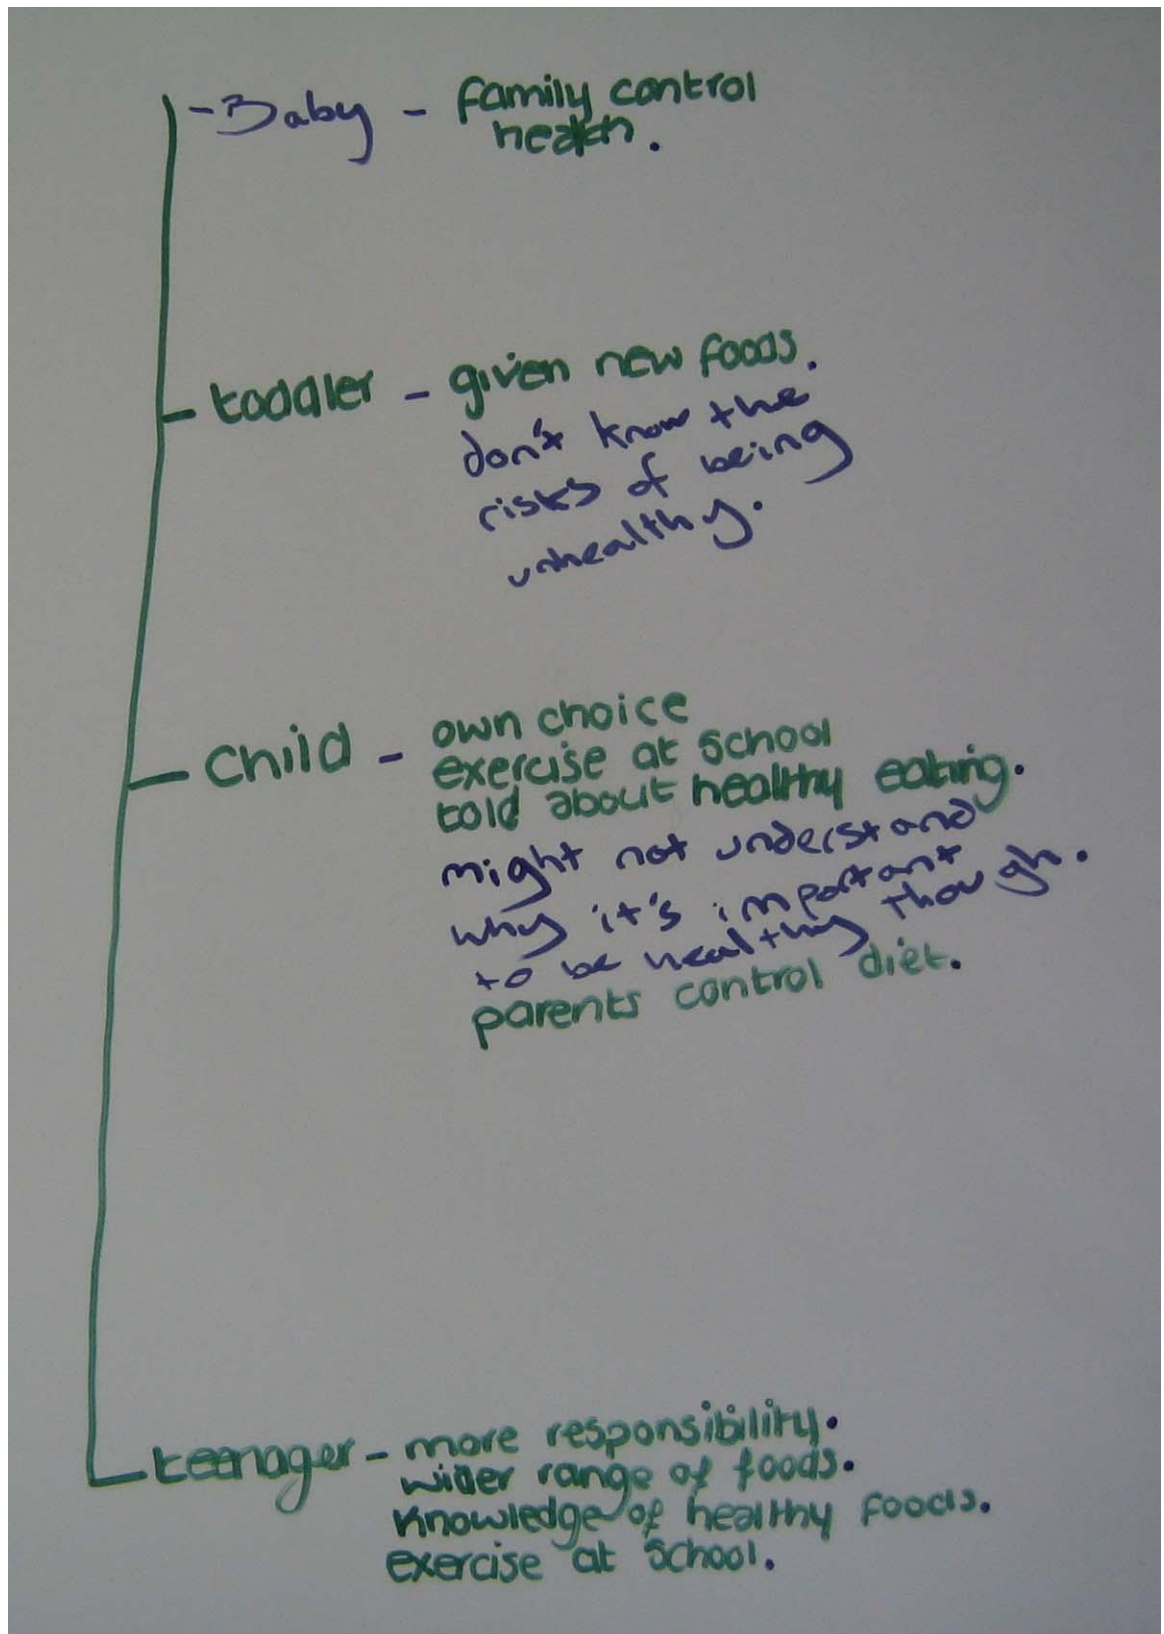 - Baby - family control
health.
toddler - given new foods.
don't know the
risks of being
unhealthy.
Child - own choice
exercise at school
told about healthy eating.
might not understand
why it's important
to be healthy though.
parents control diet.
teenager - more responsibility.
wider range of foods.
Knowledge of healthy foods.
exercise at school.